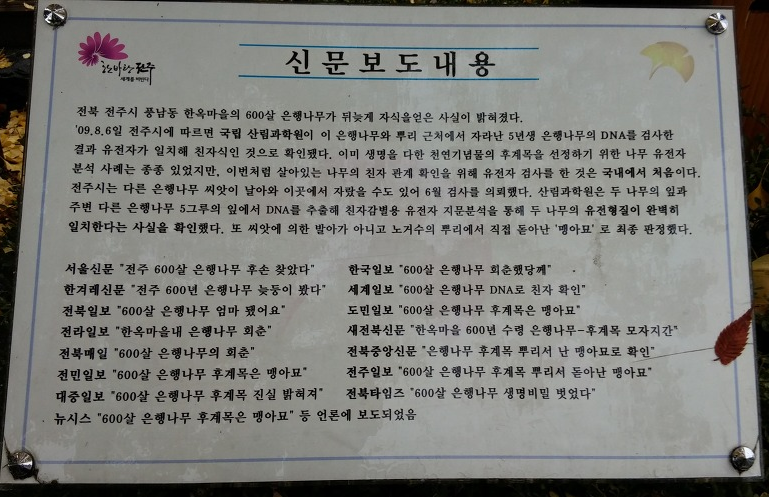 한바탕 전주
세계를 비빈다
신문보도내용
전북 전주시 풍남동 한옥마을의 600살 은행나무가 뒤늦게 자식을얻은 사실이 밝혀졌다.
'09.8.6일 전주시에 따르면 국립 산림과학원이 이 은행나무와 뿌리 근처에서 자라난 5년생 은행나무의 DNA를 검사한
결과 유전자가 일치해 친자식인 것으로 확인됐다. 이미 생명을 다한 천연기념물의 후계목을 선정하기 위한 나무 유전자
분석 사례는 종종 있었지만, 이번처럼 살아있는 나무의 친자 관계 확인을 위해 유전자 검사를 한 것은 국내에서 처음이다.
전주시는 다른 은행나무 씨앗이 날아와 이곳에서 자랐을 수도 있어 6월 검사를 의뢰했다. 산림과학원은 두 나무의 잎과
주변 다른 은행나무 5그루의 잎에서 DNA를 추출해 친자감별용 유전자 지문분석을 통해 두 나무의 유전형질이 완벽히
일치한다는 사실을 확인했다. 또 씨앗에 의한 발아가 아니고 노거수의 뿌리에서 직접 돋아난 '맹아묘' 로 최종 판정했다.
서울신문 "전주 600살 은행나무 후손 찾았다"
한겨레신문 "전주 600년 은행나무 늦둥이 봤다"
전북일보 "600살 은행나무 엄마 됐어요"
전라일보 "한옥마을내 은행나무 회춘"
전북매일 "600살 은행나무의 회춘"
전민일보 "600살 은행나무 후계목은 맹아묘"
대중일보 "600살 은행나무 후계목 진실 밝혀져"
뉴시스 "600살 은행나무 후계목은 맹아묘" 등 언론에 보도되었음
한국일보 "600살 은행나무 회춘했당께"
세계일보 "600살 은행나무 DNA로 친자 확인"
도민일보 "600살 은행나무 후계목은 맹아묘"
새전북신문 "한옥마을 600년 수령 은행나무-후계목 모자지간"
전북중앙신문 "은행나무 후계목 뿌리서 난 맹아묘로 확인"
전주일보 "600살 은행나무 후계목 뿌리서 돋아난 맹아묘"
전북타임즈 "600살 은행나무 생명비밀 벗었다"